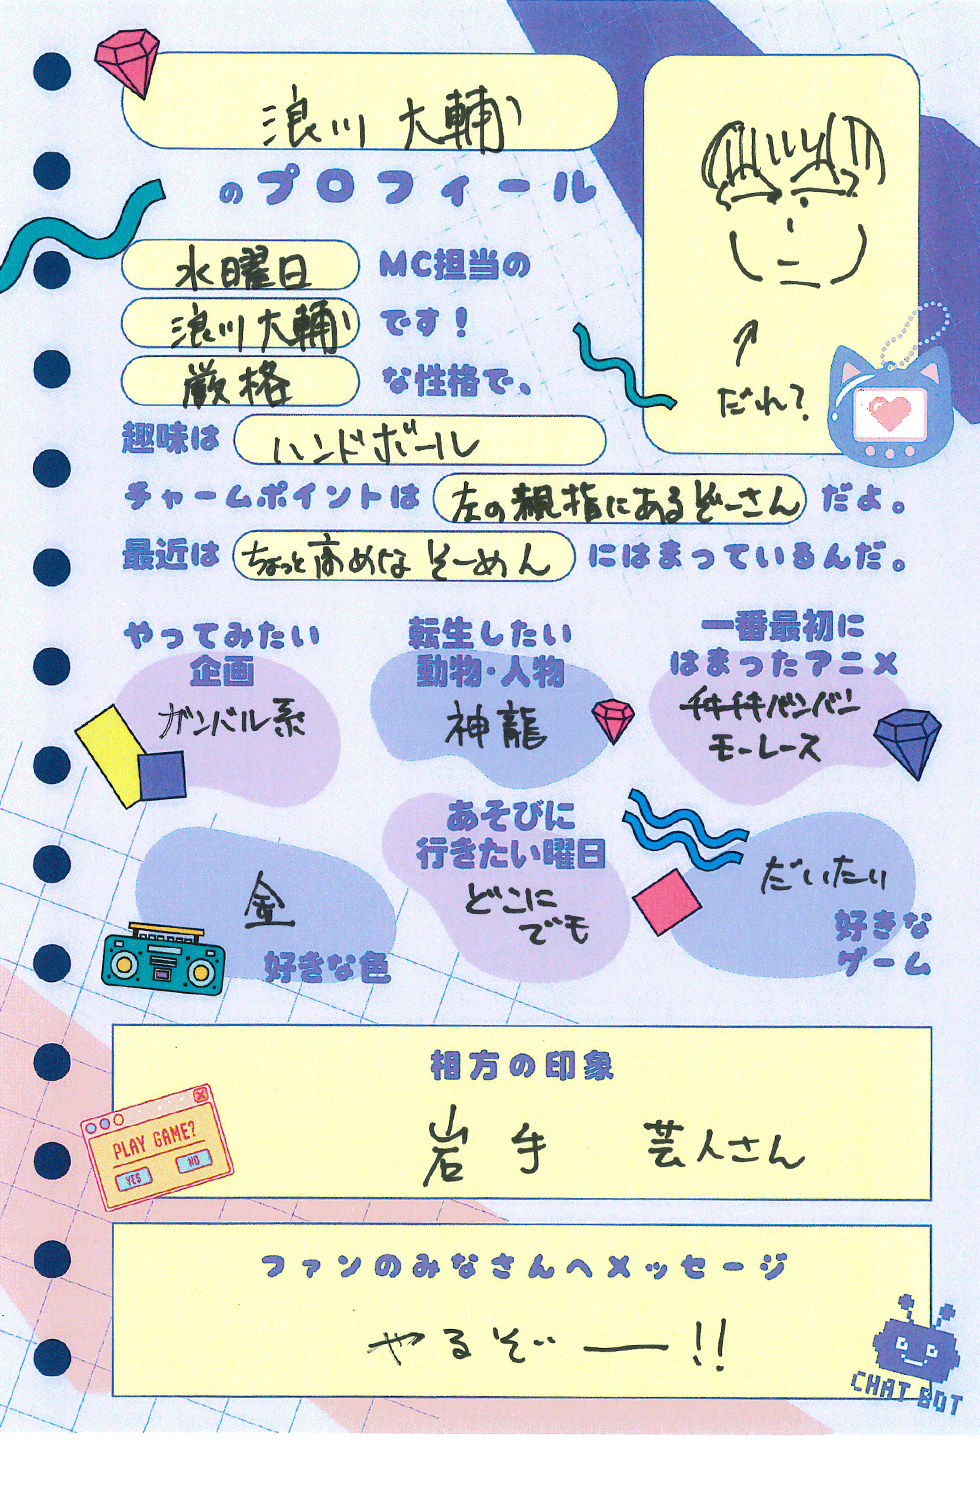 浪川 大輔
のプロフィール
水曜日 MC担当の
浪川大輔 です！
厳格 な性格で、
趣味は ハンドボール
チャームポイントは 左の親指にあるぞーさん だよ。
最近は ちょっと高めな そーめん にはまっているんだ。
だれ?
やってみたい
企画
ガンバル系
転生したい
動物・人物
神龍
一番最初に
はまったアニメ
チキチキバンバン
モーレース
金
好きな色
あそびに
行きたい曜日
どこに
でも
だいたい
好きな
ゲーム
相方の印象
岩手 芸人さん
PLAY GAME?
YES NO
ファンのみなさんへメッセージ
やるぞー!!
CHAT BOT